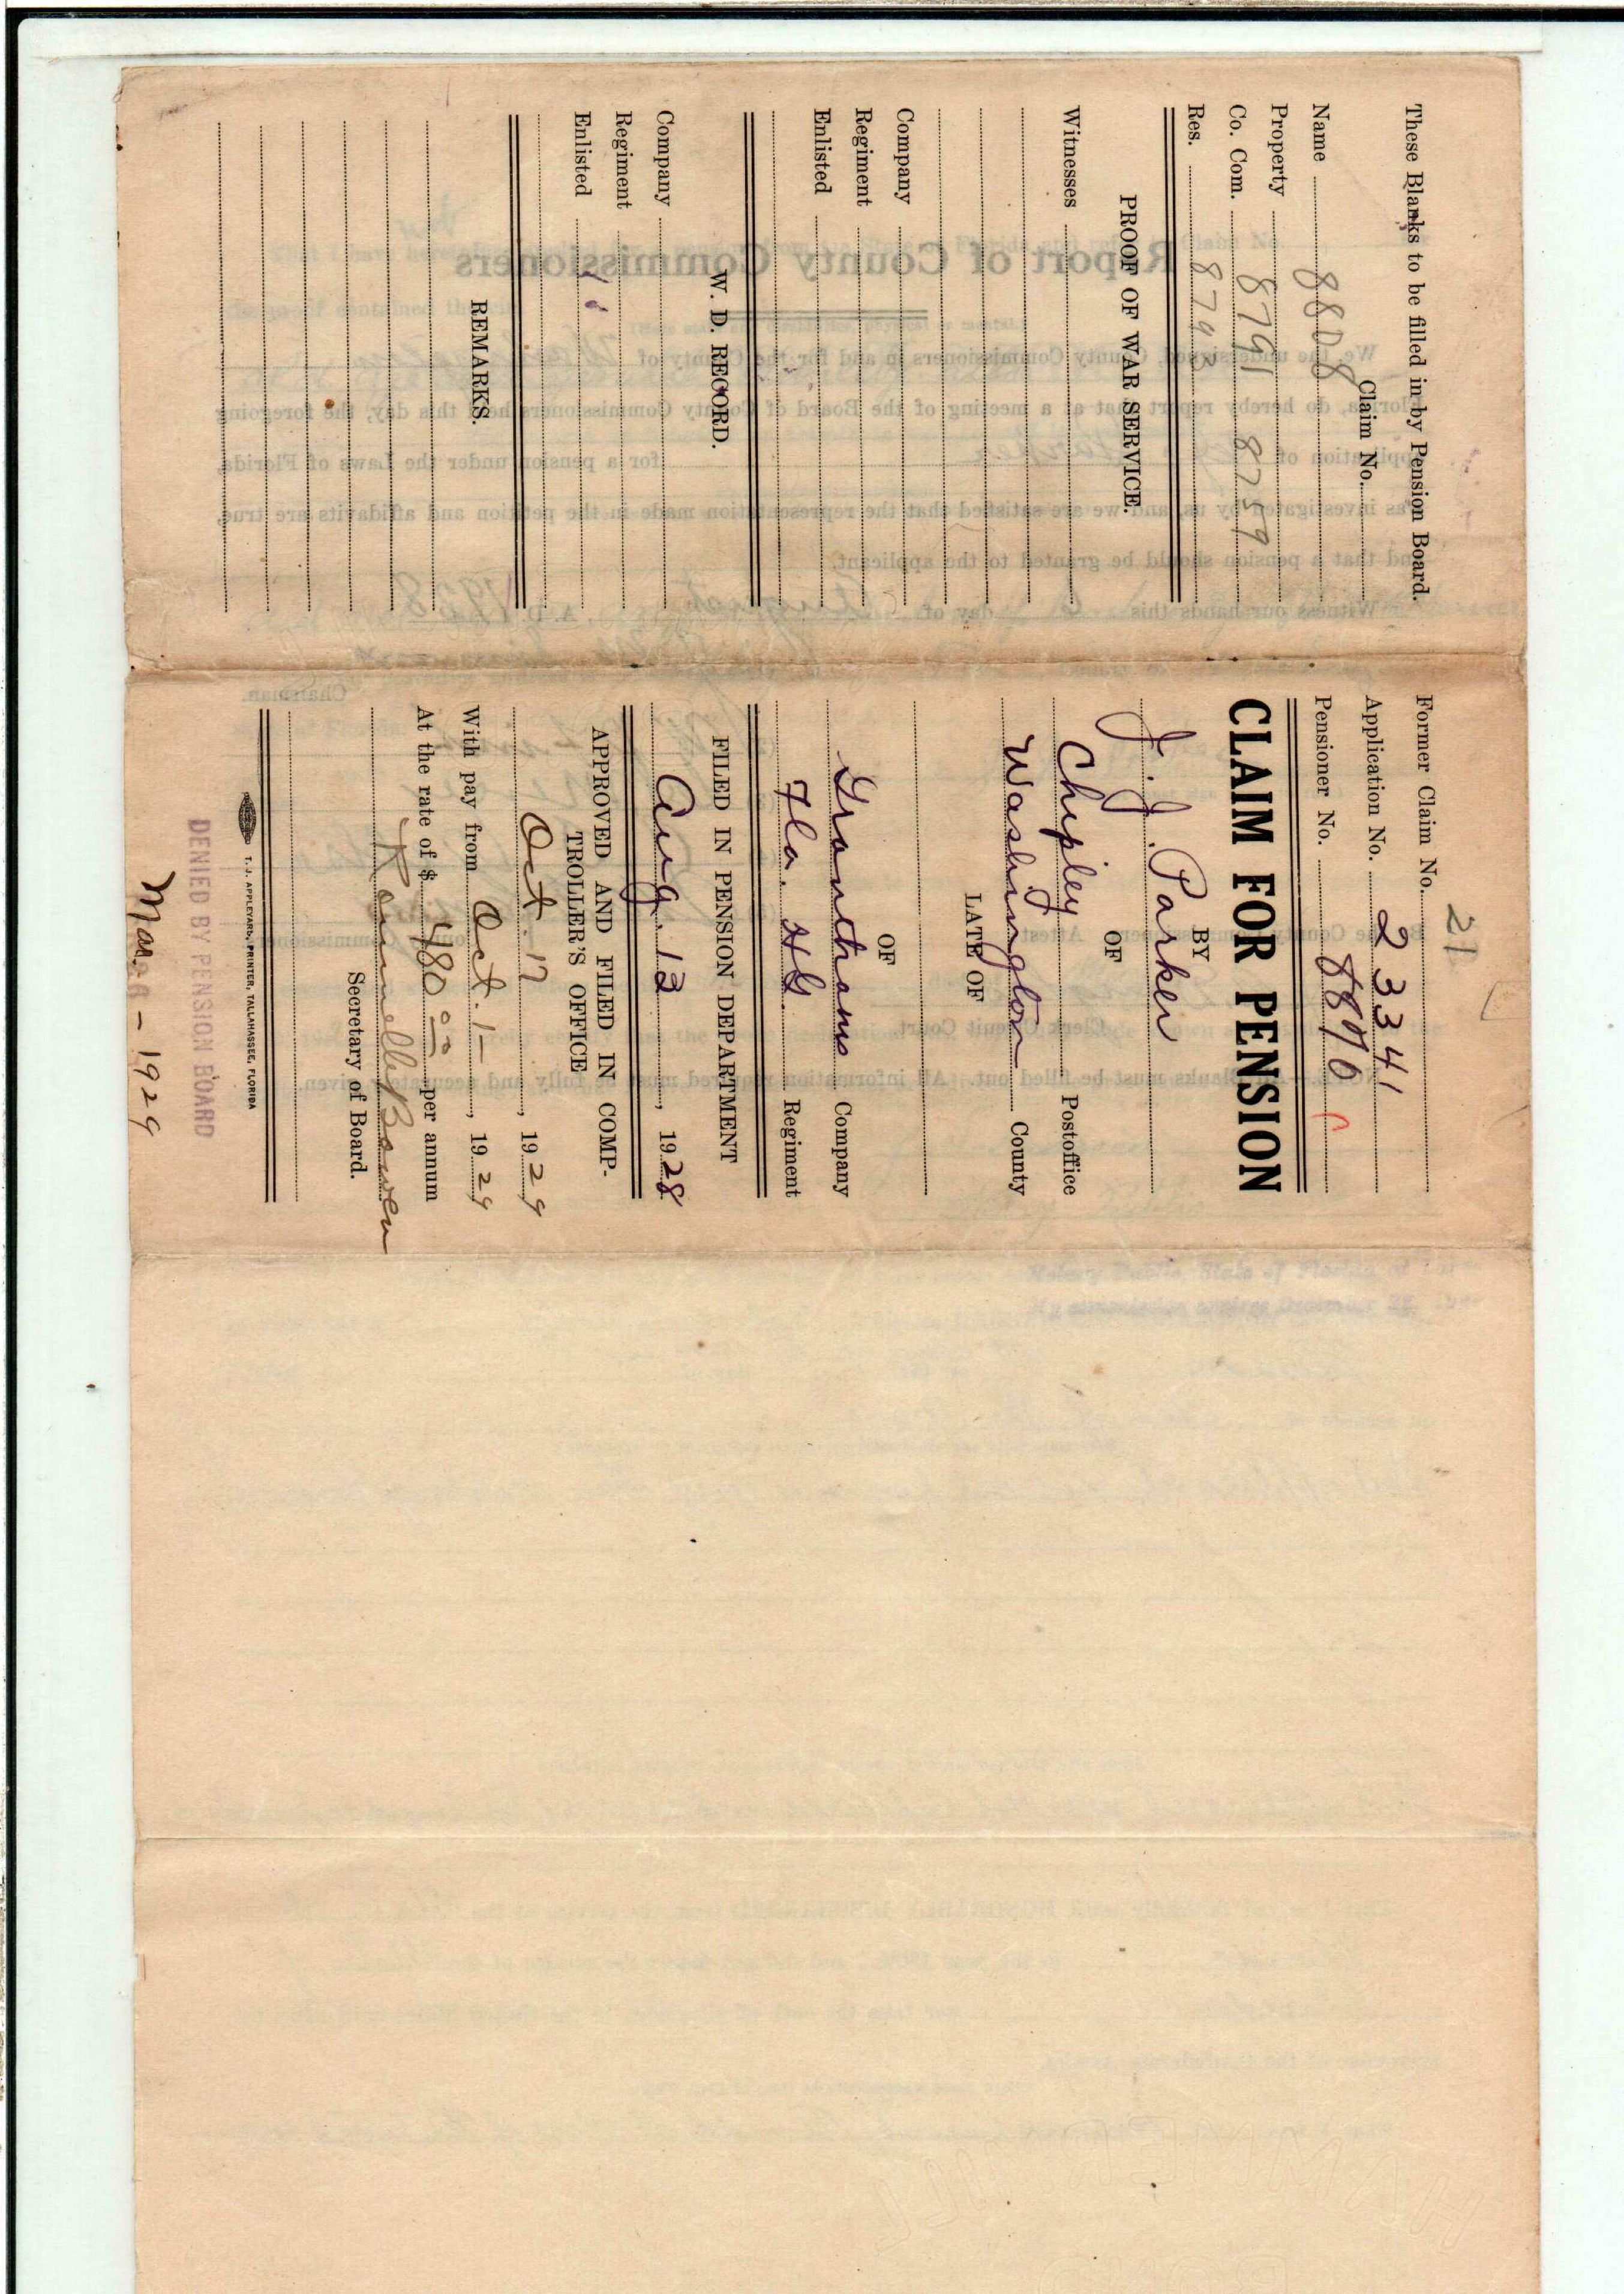 These Blanks to be filled in by Pension Board.
Claim No.
Name 8808
Property
Co. Com. 8791 8759
Res. 8793
PROOF OF WAR SERVICE.
Witnesses
Company
Regiment
Enlisted
W. D. RECORD.
Company
Regiment
Enlisted
REMARKS.
21
Former Claim No.
Application No. 23341
Pensioner No. 8876
CLAIM FOR PENSION
BY
J. J. Parker
OF
Chipley Postoffice
Washington County
LATE OF
OF
Granthams Company
Fla. HG. Regiment
FILED IN PENSION DEPARTMENT
Aug. 13, 1928
APPROVED AND FILED IN COMP-
TROLLER'S OFFICE
Oct. 17, 1929
With pay from Oct. 1–, 1929
At the rate of $ 480 00 per annum
Bowen
Secretary of Board.
T.J. APPLEYARD, PRINTER, TALLAHASSEE, FLORIDA
DENIED BY PENSION BOARD
Mar. – 1929
Report of County Commissioners
We, the undersigned, County Commissioners in and for the County of Washington
Florida, do hereby report that at a meeting of the Board of County Commissioners held this day, the foregoing
application of Parker for a pension under the Laws of Florida,
was investigated by us, and we are satisfied that the representation made in the petition and affidavits are true,
and that a pension should be granted to the applicant.
Witness our hands this 6 day of August, A. D. 1928
Chairman.
County Commissioners
Attest
Clerk Circuit Court.
blanks must be filled out. All information required must be fully and accurately given.